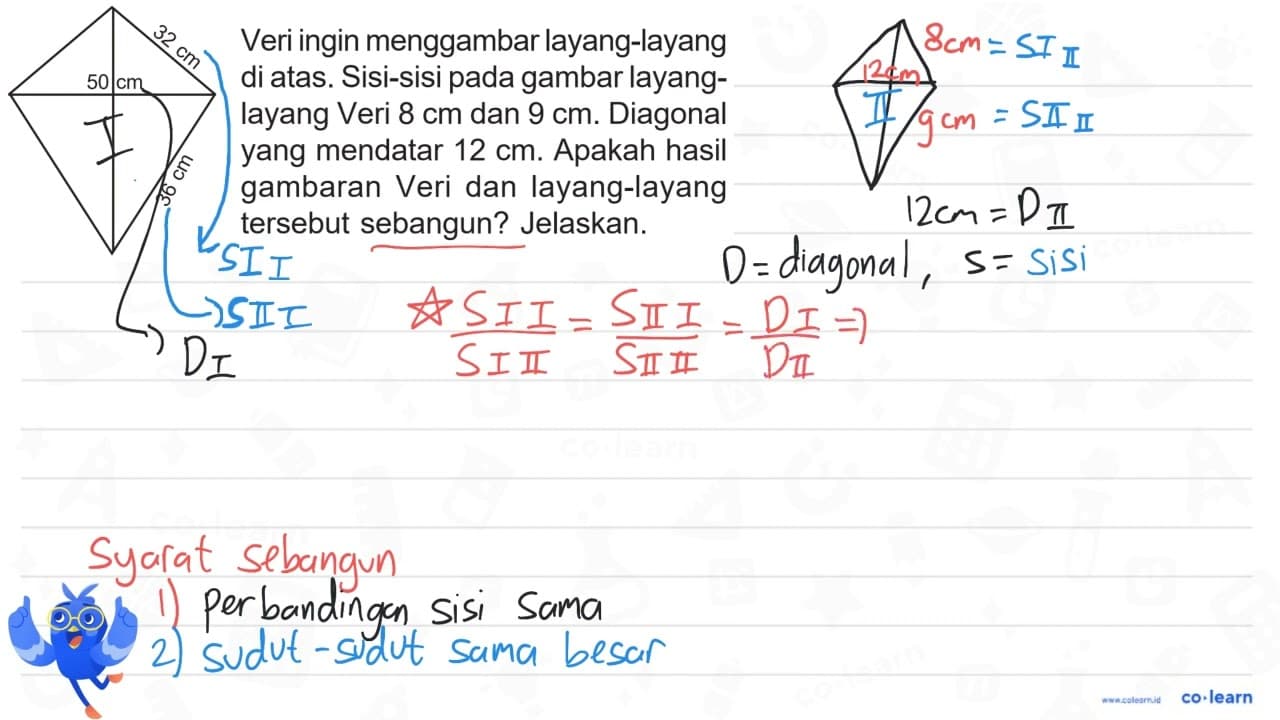 32 cm
50 cm
I
36 cm
Veri ingin menggambar layang-layang
di atas. Sisi-sisi pada gambar layang-
layang Veri 8 cm dan 9 cm. Diagonal
yang mendatar 12 cm. Apakah hasil
gambaran Veri dan layang-layang
tersebut sebangun? Jelaskan.
8cm = SI II
12cm
II
9cm = SII II
12cm = D II
D = diagonal, S = sisi
SI I
SII I
D I
☆ SI I / SI II = SII I / SII II = D I / D II ⇒
Syarat sebangun
1) perbandingan sisi sama
2) sudut-sudut sama besar
www.colearn.id
co·learn
co·learn